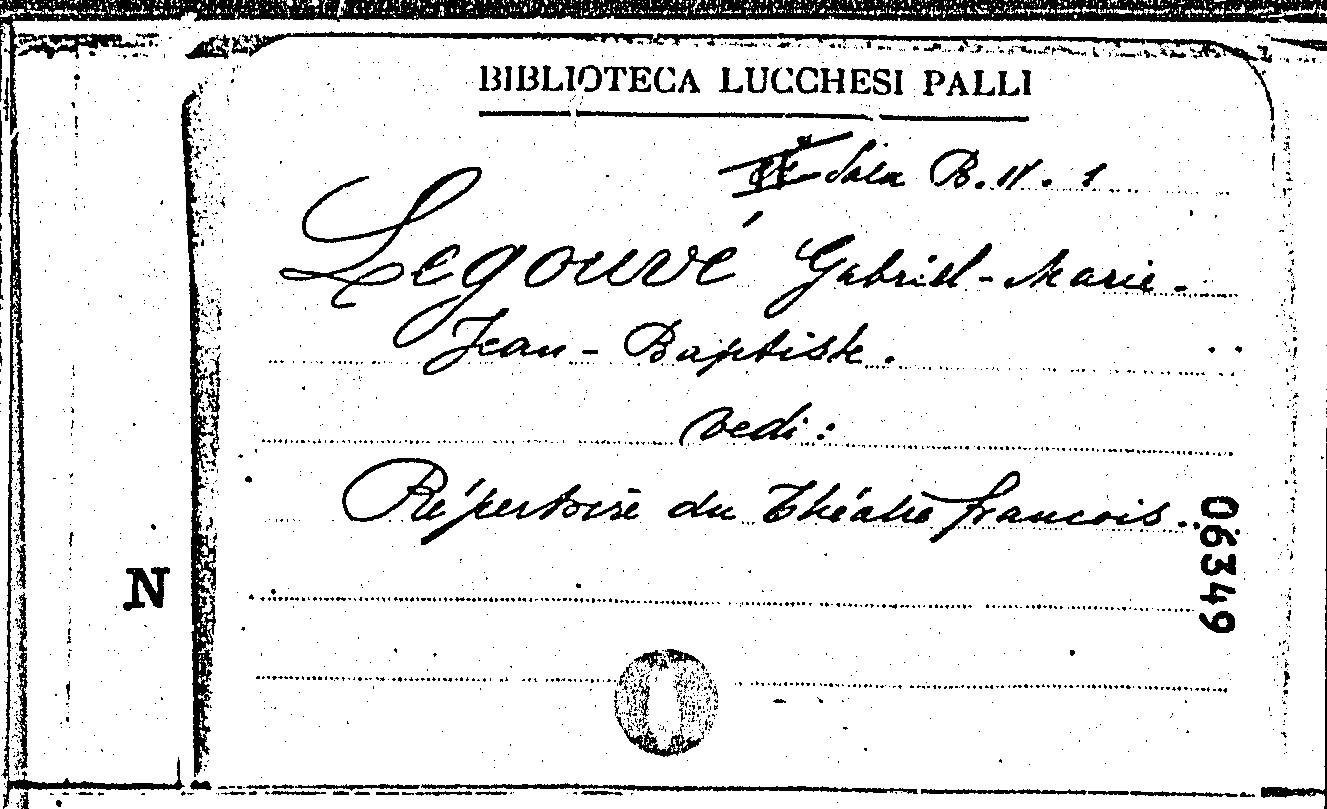 BIBLIOTECA LUCCHESI PALLI
Sala B. II. 1
Legouvé Gabriel-Marie-
Jean-Baptiste.
vedi:
Répertoire du Théatre francois.
06349
N